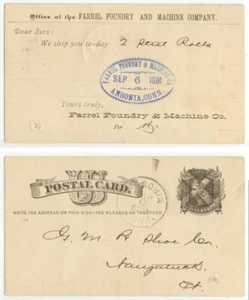 Office of the FARREL FOUNDRY AND MACHINE COMPANY.
Dear Sirs:
We ship you to-day 2 Steel Rolls
FARREL FOUNDRY & MACHINE CO.
SEP 6 1881
ANSONIA, CONN.
Yours truly,
Farrel Foundry & Machine Co.
Per
POSTAL CARD.
WRITE THE ADDRESS ON THIS SIDE - THE MESSAGE ON THE OTHER
G. M. R Shoe Co.
Naugatuck
Ct.